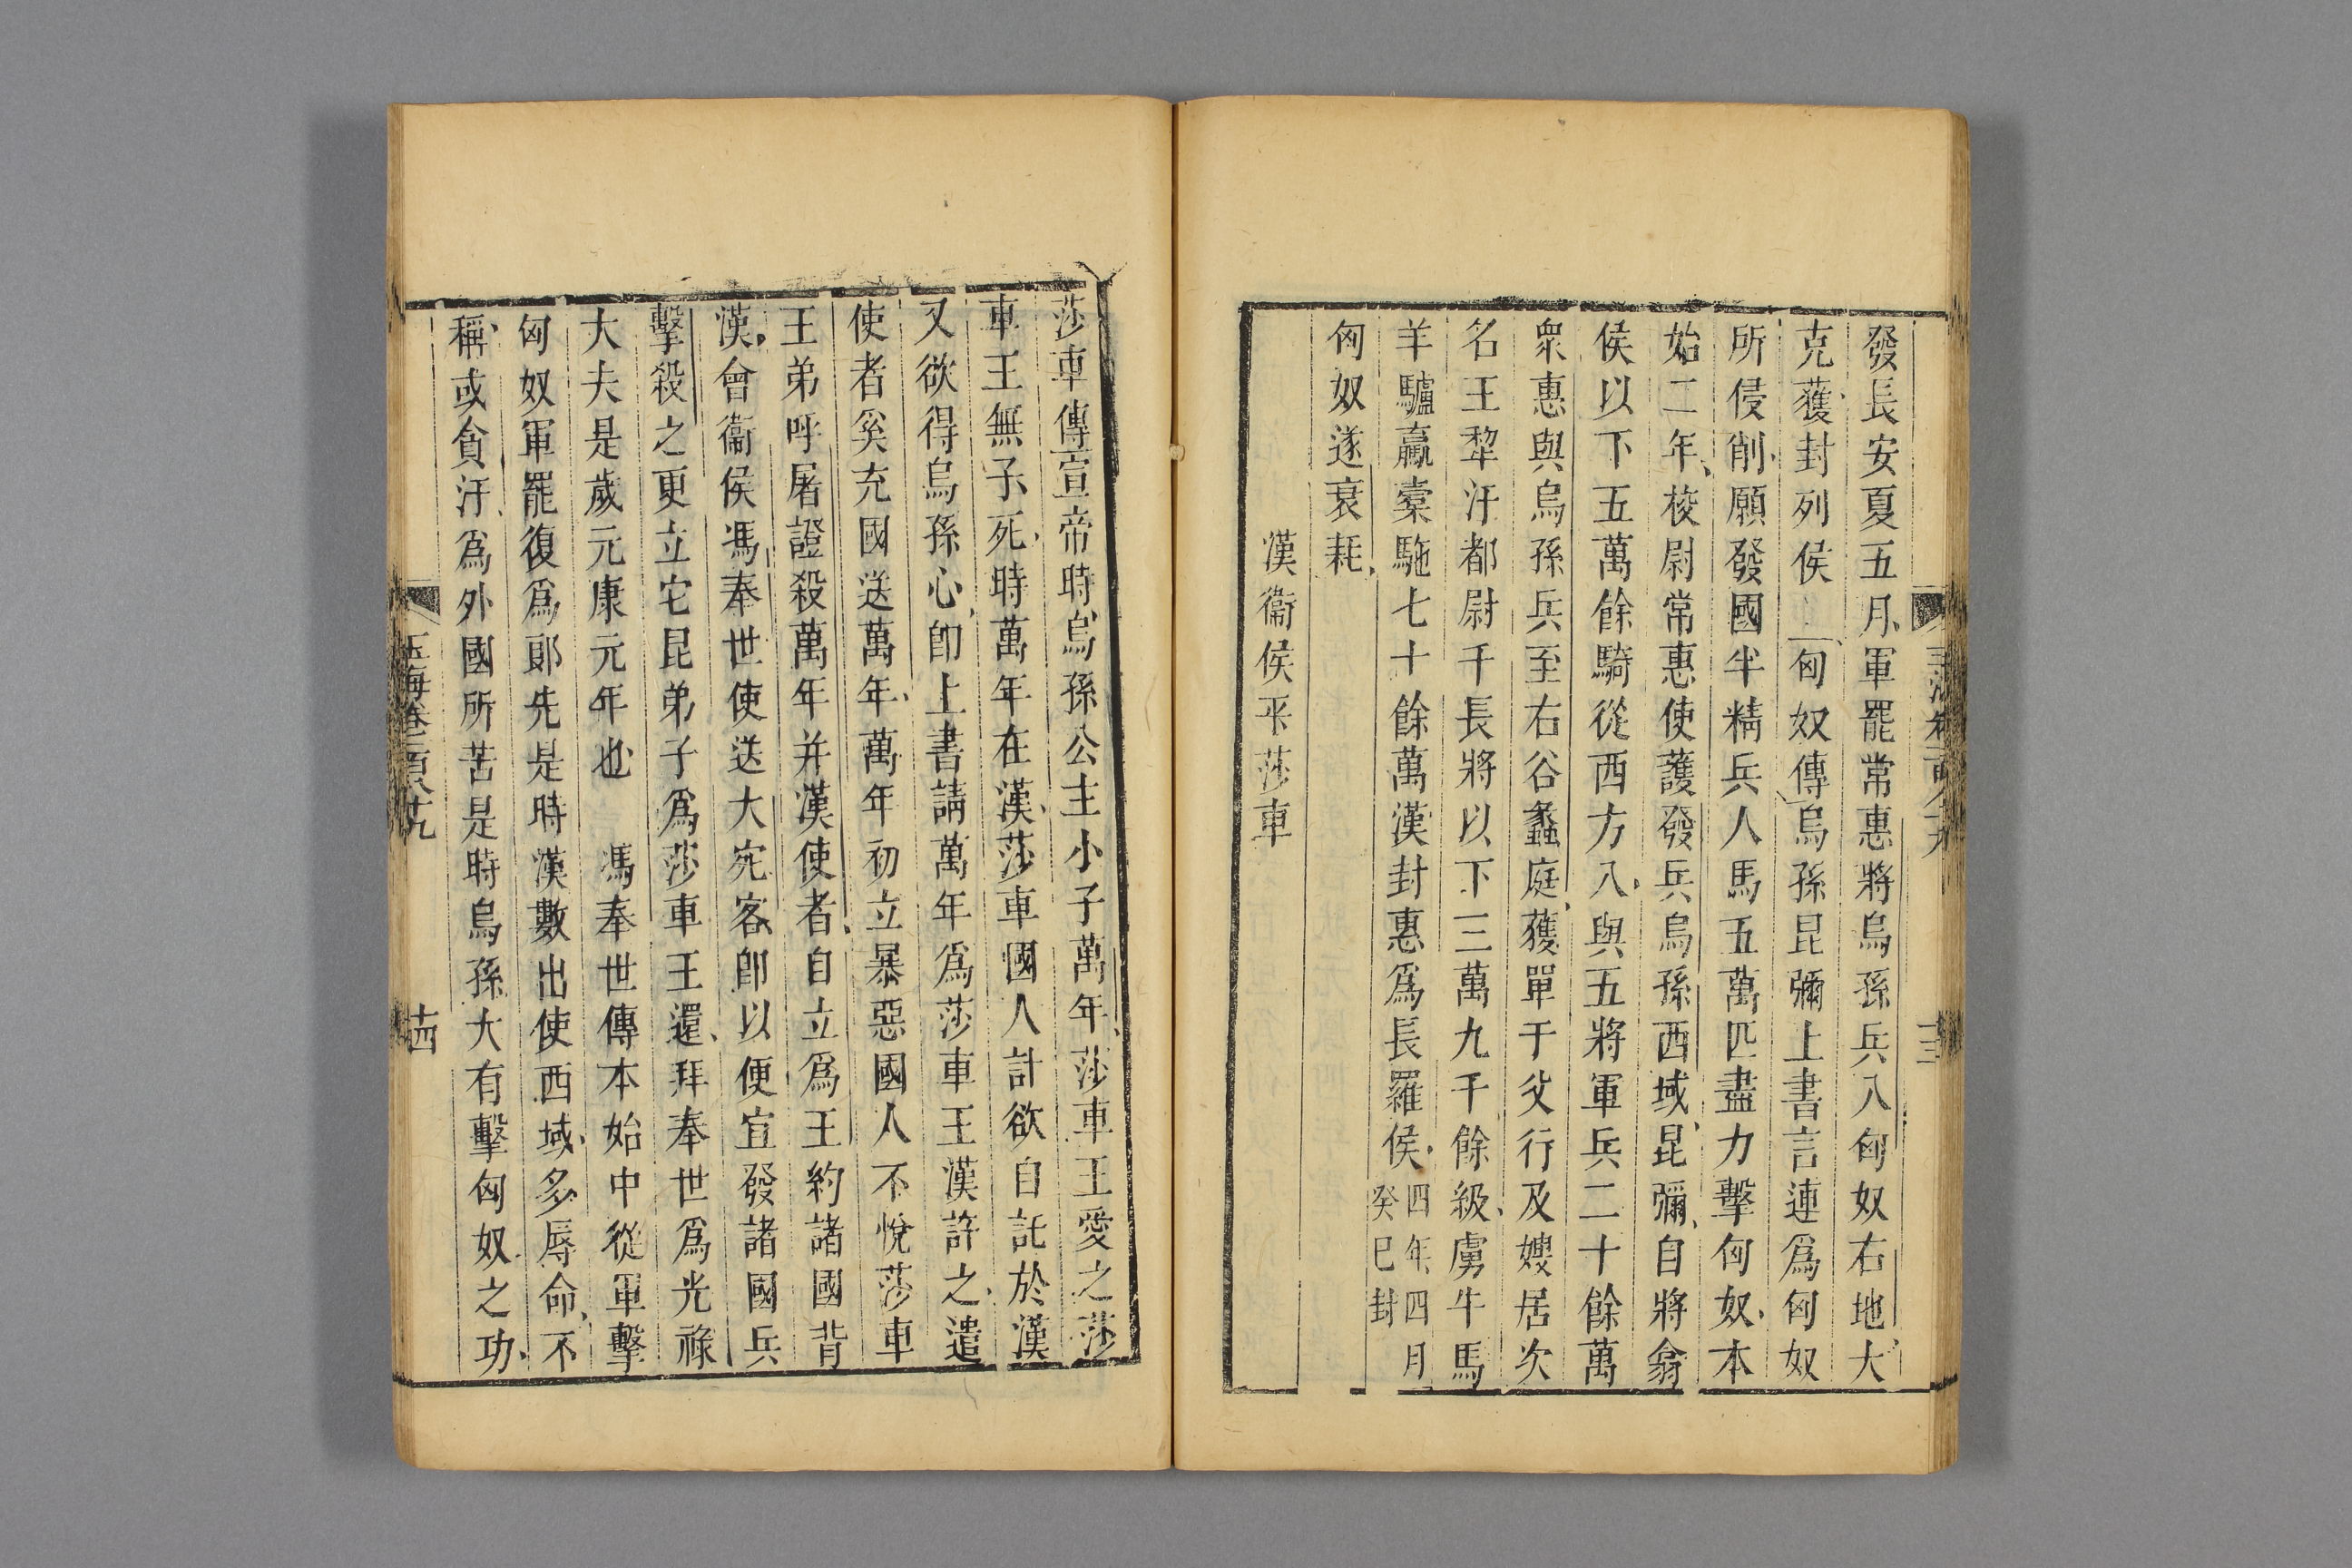 發長安夏五月軍罷常惠將烏孫兵入匈奴右地大
克獲封列侯 匈奴傳烏孫昆彌上書言連爲匈奴
所侵削願發國半精兵人馬五萬匹盡力擊匈奴本
始二年校尉常惠使護發兵烏孫西域昆彌自將翁
侯以下五萬餘騎從西方入與五將軍兵二十餘萬
衆惠與烏孫兵至右谷蠡庭獲單于父行及嫂居次
名王犂汙都尉千長將以下三萬九千餘級虜牛馬
羊驢驘橐駞七十餘萬漢封惠爲長羅侯四年四月
癸巳封
匈奴遂衰耗
漢衞侯平莎車
莎車傳宣帝時烏孫公主小子萬年莎車王愛之莎
車王無子死時萬年在漢莎車國人計欲自託於漢
又欲得烏孫心卽上書請萬年爲莎車王漢許之遣
使者奚充國送萬年萬年初立暴惡國人不悅莎車
王弟呼屠證殺萬年并漢使者自立爲王約諸國背
漢會衞侯馮奉世使送大宛客卽以便宜發諸國兵
擊殺之更立它昆弟子爲莎車王還拜奉世爲光祿
大夫是歲元康元年也 馮奉世傳本始中從軍擊
匈奴軍罷復爲郞先是時漢數出使西域多辱命不
稱或貪汙爲外國所苦是時烏孫大有擊匈奴之功
玉海卷一百八十九
十四